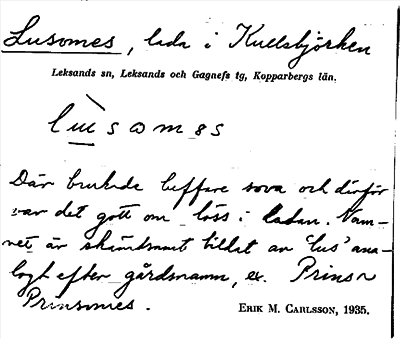 Lusomes, lada i Kullsbjörken
Leksands sn, Leksands och Gagnefs tg, Kopparbergs län.
lùsomǝs
Där brukade luffare sova och därför
var det gott om löss i ladan. Nam-
net är skämtsamt bildat av 'lus' ana-
logt efter gårdsnamn, ex. Prins
Prinsomes.
ERIK M. CARLSSON, 1935.